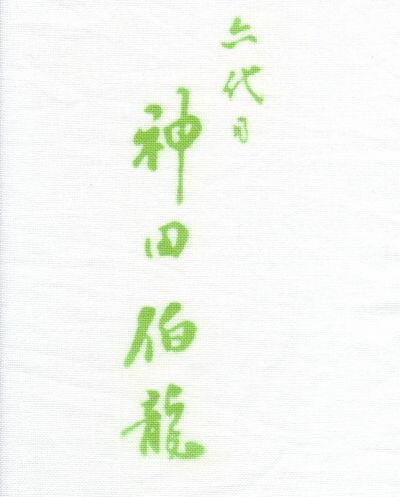 六代目
神田伯龍